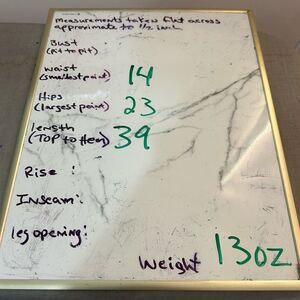 measurements taken flat across
approximate to 1/2 inch
Bust :
(Pit to Pit)
waist 14
(smallest point)
Hips 23
(largest point)
length 39
(TOP to Hem)
Rise :
Inseam:
leg opening:
weight 13oz